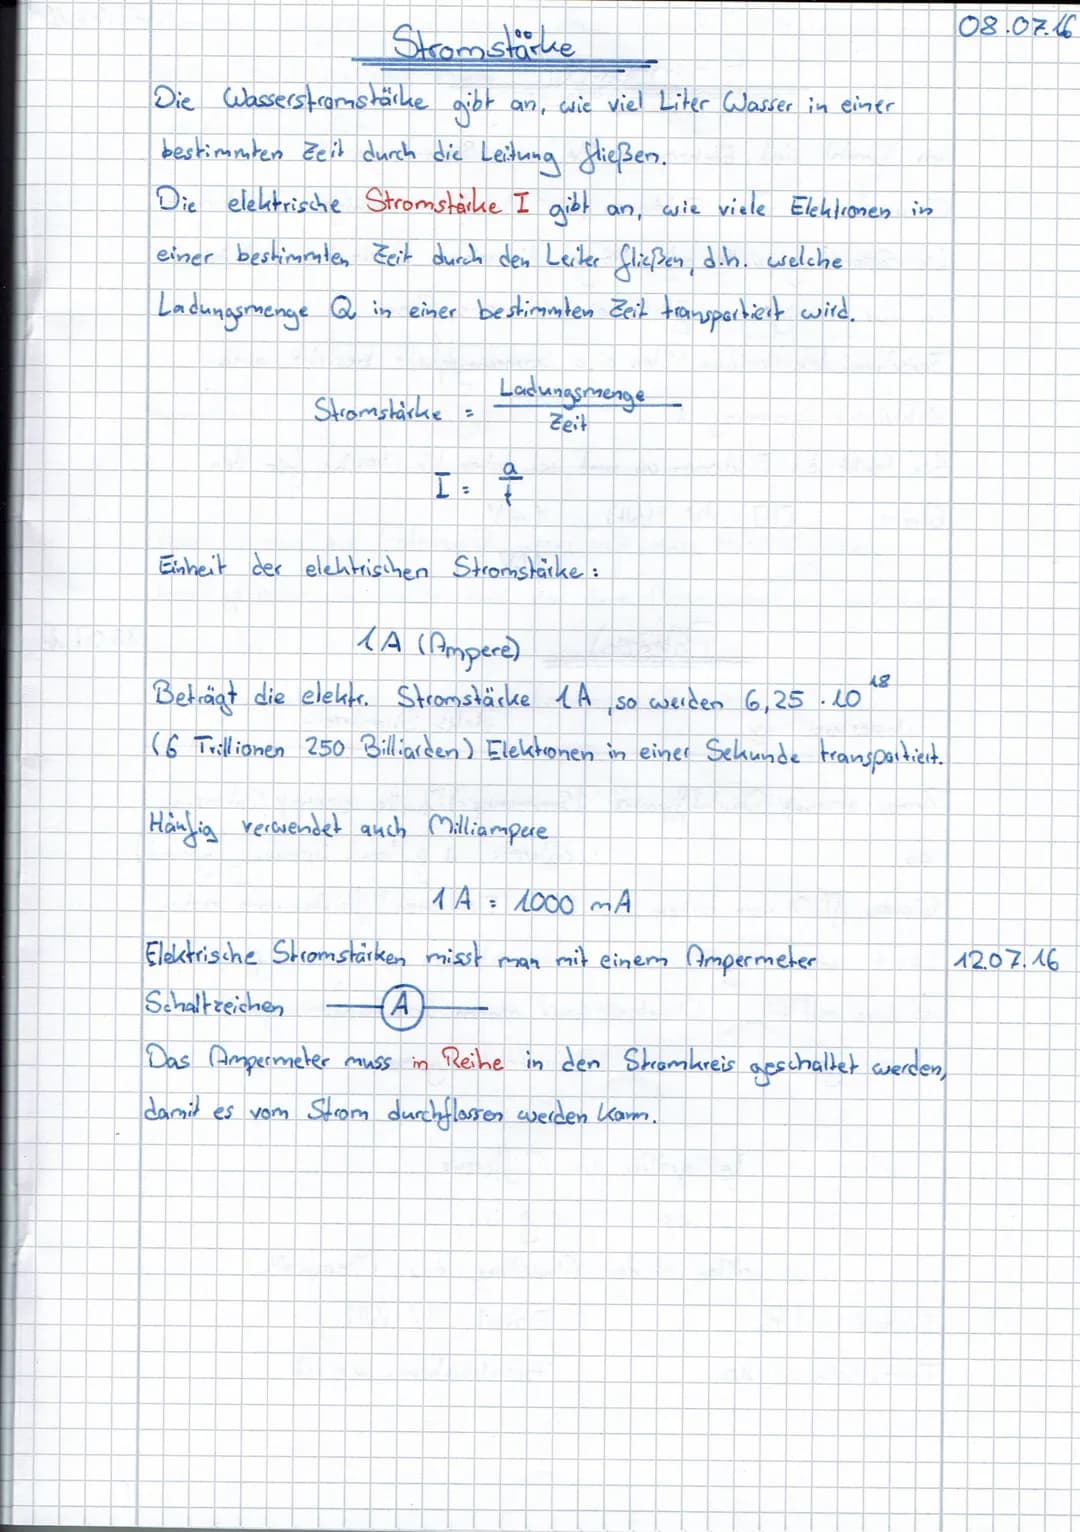 08.07.16
Stromstärke
Die Wasserstromstärke gibt an, wie viel Liter Wasser in einer
bestimmten Zeit durch die Leitung fließen.
Die elektrische Stromstärke I gibt an, wie viele Elektronen in
einer bestimmten Zeit durch den Leiter fließen, d.h. welche
Ladungsmenge Q in einer bestimmten Zeit transportiert wird.
Stromstärke = Ladungsmenge
Zeit
I = Q
t
Einheit der elektrischen Stromstärke:
1A (Ampere)
Beträgt die elektr. Stromstärke 1A, so werden 6,25 · 10¹⁸
(6 Trillionen 250 Billiarden) Elektronen in einer Sekunde transportiert.
Häufig verwendet auch Milliampere
1A = 1000 mA
Elektrische Stromstärken misst man mit einem Ampermeter 12.07.16
Schaltzeichen A
Das Ampermeter muss in Reihe in den Stromkreis geschaltet werden,
damit es vom Strom durchflossen werden kann.